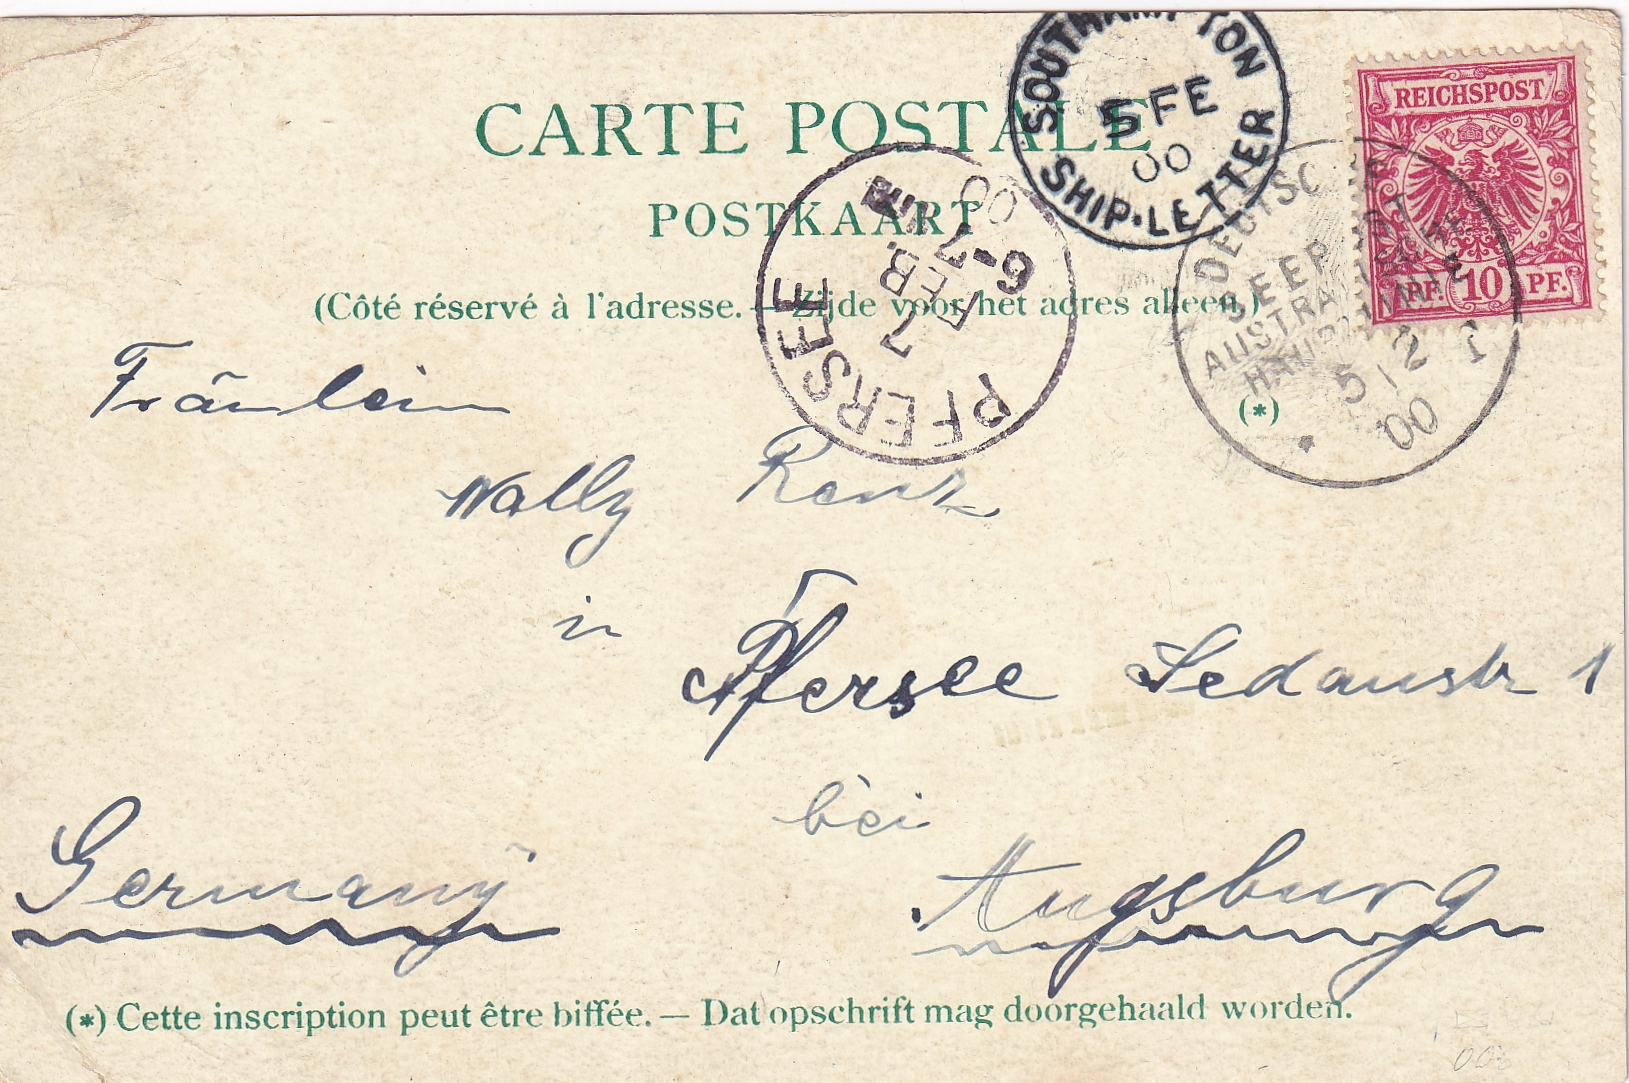 CARTE POSTALE
POSTKAART
(Côté réservé à l'adresse. — Zijde voor het adres alleen.)
(*)
SOUTHAMPTON
5 FE
00
SHIP-LETTER
REICHSPOST
10 PF.
DEUTSCHE
SEEPOST
AUSTRALISCHE
HAUPTLINIE
5 / 2
00
*
PFERSEE
7
FEB.
6-7
00
Fräulein
Wally Renz
in
Pfersee Sedanstr 1
bei
Augsburg
Germany
(*) Cette inscription peut être biffée. — Dat opschrift mag doorgehaald worden.